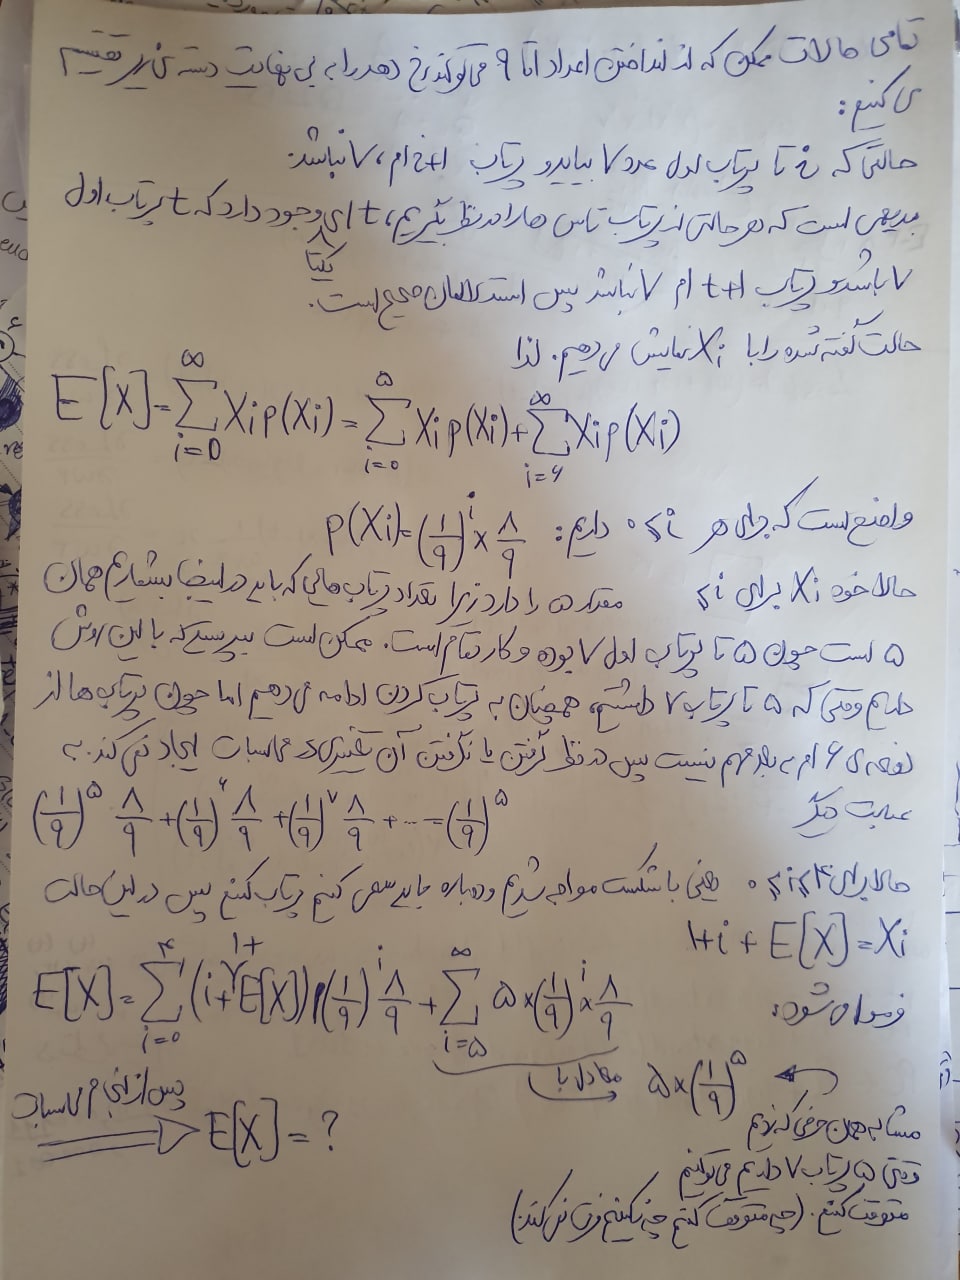 تمامی حالات ممکن که از انداختن اعداد 1 تا ۹ می‌تواند رخ دهد را به بی نهایت دسته‌ی زیر تقسیم
می کنیم:
حالتی که i تا پرتاب اول عدد ۷ بیاید و پرتاب i+1 ام، ۷ نباشد.
بدیهی است که هر حالتی از پرتاب تاس ها را در نظر بگیریم، t ای یکتا وجود دارد که t پرتاب اول
۷ باشد و پرتاب t+1 ام ۷ نباشد پس استدلالمان صحیح است.
حالت گفته شده را با Xi نمایش می دهیم. لذا
E[X] = ∑_{i=0}^{∞} Xi p(Xi) = ∑_{i=0}^{۵} Xi p(Xi) + ∑_{i=۶}^{∞} Xi p(Xi)
واضح است که برای هر i ≥ ۰ داریم: p(Xi) = (1/9)^i × ۸/9
حالا خود Xi برای i ≥ مقدار ۵ را دارد زیرا تعداد پرتاب هایی که باید در اینجا بشماریم همان
۵ است چون ۵ تا پرتاب اول ۷ بوده و کار تمام است. ممکن است بپرسید که با این روش
داریم وقتی که ۵ تا پرتاب ۷ داشتیم، همچنان به پرتاب کردن ادامه می دهیم اما چون پرتاب ها از
دفعه ی ۶ ام به بعد مهم نیست پس در نظر گرفتن یا نگرفتن آن تغییری در محاسبات ایجاد نمی کند. به
عبارت دیگر (1/9)^۵ ۸/9 + (1/9)^۶ ۸/9 + (1/9)^۷ ۸/9 + ... = (1/9)^۵
حالا برای ۴ ≥ i ≥ ۰ یعنی با شکست مواجه شدیم و دوباره باید سعی کنیم پرتاب کنیم پس در این حالت
1+i + E[X] = Xi
E[X] = ∑_{i=0}^{۴} (i+1+E[X]) (1/9)^i ۸/9 + ∑_{i=۵}^{∞} ۵ × (1/9)^i × ۸/9
معادل با ۵ × (1/9)^۵
مشابه همان حرفی که زدیم
وقتی ۵ پرتاب ۷ داریم می توانیم
متوقف کنیم. (چه متوقف کنیم چه نکنیم فرقی نمی کند)
پس از انجام محاسبات
E[X] = ?